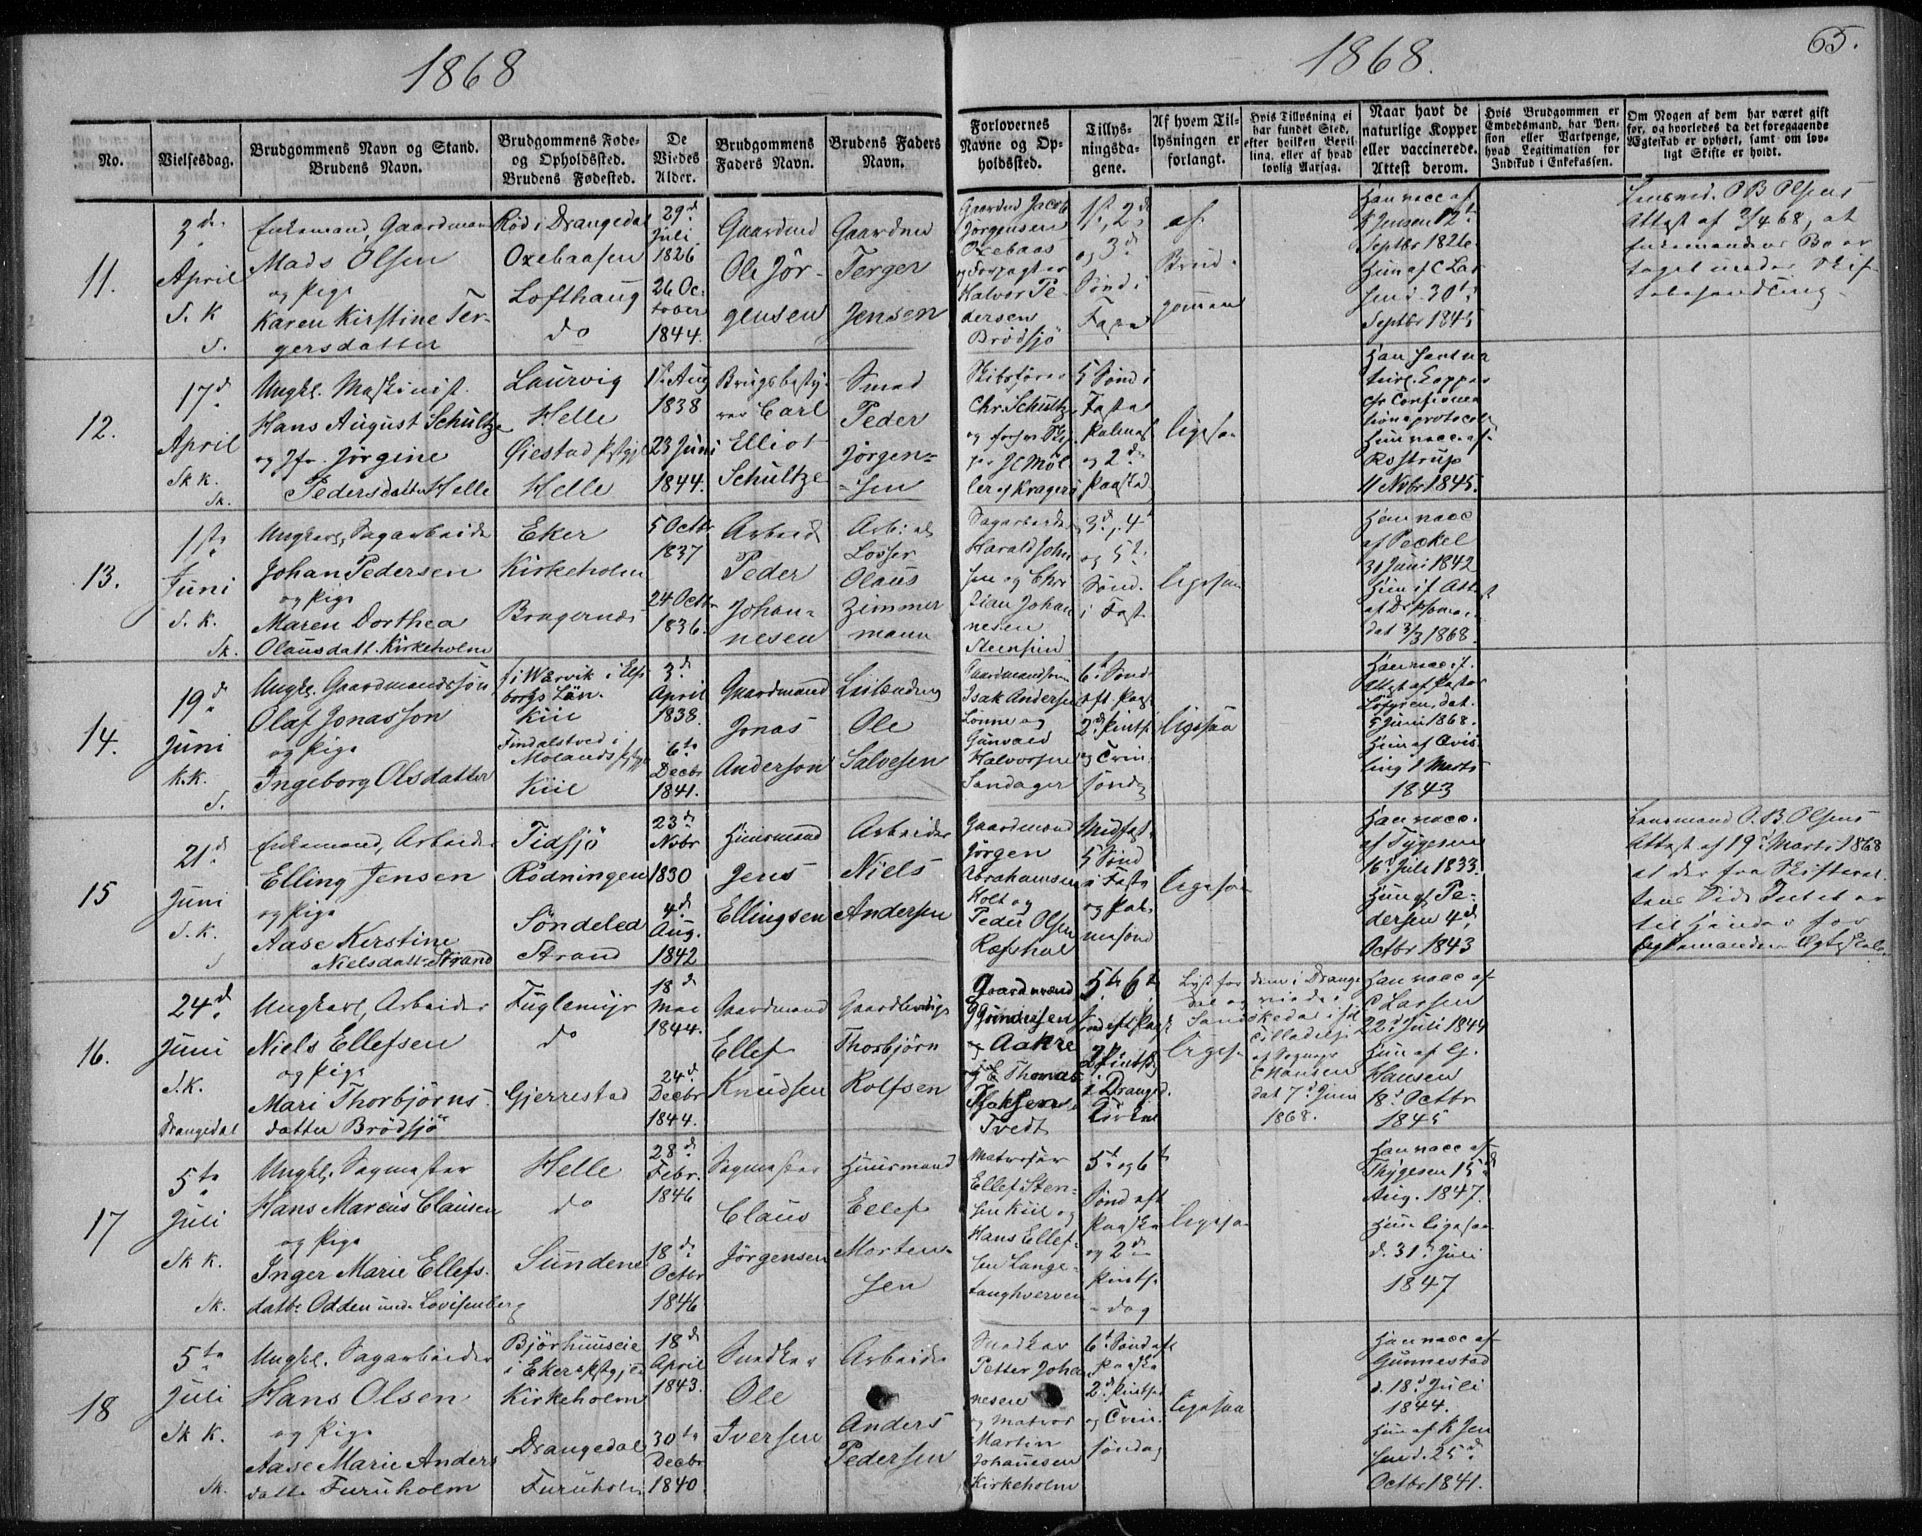 1868
1868.
65.
No.
Vielsesdag.
Brudgommens Navn og Stand.
Brudens Navn.
Brudgommens Føde-
og Opholdssted.
Brudens Fødested.
De
Viedes
Alder.
Brudgommens
Faders Navn.
Brudens Faders
Navn.
Forlovernes
Navne og Op-
holdssted.
Tillys-
ningsda-
gene.
Af hvem Til-
lysningen er
forlangt.
Hvis Tillysning ei
har fundet Sted,
efter hvilken Bevil-
ling, eller af hvad
lovlig Aarsag.
Naar havt de
naturlige Kopper
eller vaccinerede.
Attest derom.
Hvis Brudgommen er
Embedsmand, har Pen-
sion eller Vartpenge,
hvad Legitimation for
Indskud i Enkekassen.
Om Nogen af dem har været gift
før, og hvorledes da det foregaaende
Ægteskab er ophørt, samt om lov-
ligt Skifte er holdt.
11.
3d.
April
S. K
S.
Enkemand, Gaardmand
Mads Olsen
og Pige
Karen Kirstine Ter-
gersdatter
Rød i Drangedal
Oxebaasen
Lofthaug
do
29d
Juli
1826
26 Oc-
tober
1844.
Gaardmd
Ole Jör-
gensen
Gaardmd
Terger
Jensen
Gaardmd Jacob
Jørgensen
Oxebaas
Halvor Pe-
dersen
Brödsjö
1st, 2d
og 3d
Sönd i
Faste
af
Brud-
gommen
Han vacc af
P Jensen 12t
Septbr 1826
Hun af C Lar
sen d. 30t
Septbr 1845
Lensmd. O B Olsens
Attest af 2/4 68, at
Enkemandens Bo er
taget under Skif-
tebehandling
12.
17d
April
Sk K.
Sk.
Ungkl. Maskinist
Hans August Schultze
og Jfr. Jörgine
Pedersdatter Helle
Laurvig
Helle
Øiestad Pstgjl
Helle
1st Aug
1838
23 Juni
1844.
Brugsbesty-
rer Carl
Elliot
Schultze
Smed
Peder
Jörgen-
sen
Skibsfører
Chr. Schultz
ler af Kragerø
5 Sönd i
Faste
Palmes.
og 2d
Paaskd.
ligesaa
Han havt na
turl. Kopper
chr Confirma
tionsprotocoll
Hun vacc. af
Rostrup
11 Novbr 1845.
13.
1ste
Juni
S. K.
Sk.
Ungkarl, Sagarbeider
Johan Pedersen
og Pige
Maren Dorthea
Olausdatt. Kirkeholm
Eker
Kirkeholm
Bragernæs
5 Octbr
1837
24 Octbr
1836.
Arbeid
Peder
Johan-
nesen
Losser
Olaus
Zimmer
mann
Sagarbeider
Harald John
sen og Chri
stian Johan
nesen
3d, 4t
og 5t
Sönd.
i Fast.
ligesaa
Han vacc
af Peckel
30 Juni 1842
Hun if Attest
dat 3/3 1868.
14.
19d
Juni
K.K.
S.
Ungkl. Gaardmandssön
Olaf Jonasson
og Pige
Ingeborg Olsdatter
f i Warvik i Elfs
borgs Län.
Kiil
Molands Pstgj.
Kiil
3d
April
1838.
6te
Decbr
1841.
Gaardmand
Jonas
Anderson
Ole
Salvesen
Gaardmandssøn
Isak Andersen
Lönne og
Gunvald
Halvorsen
Sandager
6t Sönd.
eft Paas
2d Pintsd
og Trin.
söndag
ligesaa
Han vacc if.
Attest af Pastor
Löfgren, dat.
5 Juni 1868.
Hun af Qvis
ling 1 Marts
1843
15
21d
Juni
S. K.
S
Enkemand, Arbeider
Elling Jensen
og Pige
Aase Kirstine
Nielsdatt. Strand
Tidsjö
Rödningen
Söndeled
Strand
23d
Novbr
1830
4d
Aug.
1842
Huusmand
Jens
Ellingsen
Arbeider
Niels
Andersen
Gaardmand
Jörgen
Abrahamsen
Holt og
Peder Olsen
Midfast
5 Sönd
i Faste
og Pal-
mesönd
ligesaa
Han vacc.
af Tygesen
16d Juli 1833.
Hun af Pe-
dersen 4d
Octbr 1843
Lensmand O. B Olsens
Attest af 19d Marts 1868
at der fra Skifteret-
tens Side Intet er
til Hinder for
Enkemandens Ægteskab.
16.
24d
Juni
S.K.
Drangedal
Ungkarl, Arbeider
Niels Ellefsen
og Pige
Mari Thorbjörns-
datter Brödsjö
Fuglemyr
do
Gjerrestad
18d
Mai
1844.
24d
Decbr
1844.
Gaardmand
Ellef
Knudsen
Thorbjörn
Rolfsen
Gaardmænd
G Gundersen
Aakre
Tvedt
5te 6te
Sönd eft Paask
2d Pintsd
i Dranged.
Kirke
ligesaa
Lyst for dem i Drange
dal og viede i
Hansen
dat 7d Juni
1868.
Han vacc af
C Larsen
22d Juli 1844
Hun af G.
Hansen
18d Octbr
1845
17
5te
Juli
Sk K.
Sk.
Ungkl. Sagmester
Hans Marcus Clausen
og Pige
Inger Marie Ellefs-
datter Odden und. Lovisenberg
Helle
do
Sundene
28d
Febr.
1846
18d
Octbr
1846
Sagmester
Claus
Jörgensen
Huusmand
Ellef
Morten-
sen
Matroser
Ellef Sten-
sen Kiil og
Hans Ellef-
sen Lange-
tanghverven
5t og 6t
Sönd eft
Paaske
og 2d
Pintse-
dag
ligesaa
Han vacc af
Thygesen 15d
Aug. 1847.
Hun ligesaa
d. 31t Juli
1847
18
5te
Juli
Sk K.
Sk.
Ungkl. Sagarbeider
Hans Olsen
og Pige
Aase Marie Anders
datter Furuholm
Bjørhuuseie
i Eker Pstgjeld
Kirkeholm
Drangedal
Furuholm
18d
April
1843.
30te
Decbr
1840
Snedker
Ole
Iversen
Arbeider
Anders
Pedersen
Snedker
Petter Joha
nesen
og Matros
Martin
Johannesen
Kirkeholm
6t Sönd eft
Paaske
2d Pintsd
og Trin.
söndag
ligesaa
Han vacc af
Gunnestad
d. 18d Juli
1844.
Hun af P Jen
sen d. 25d
Octbr 1841.